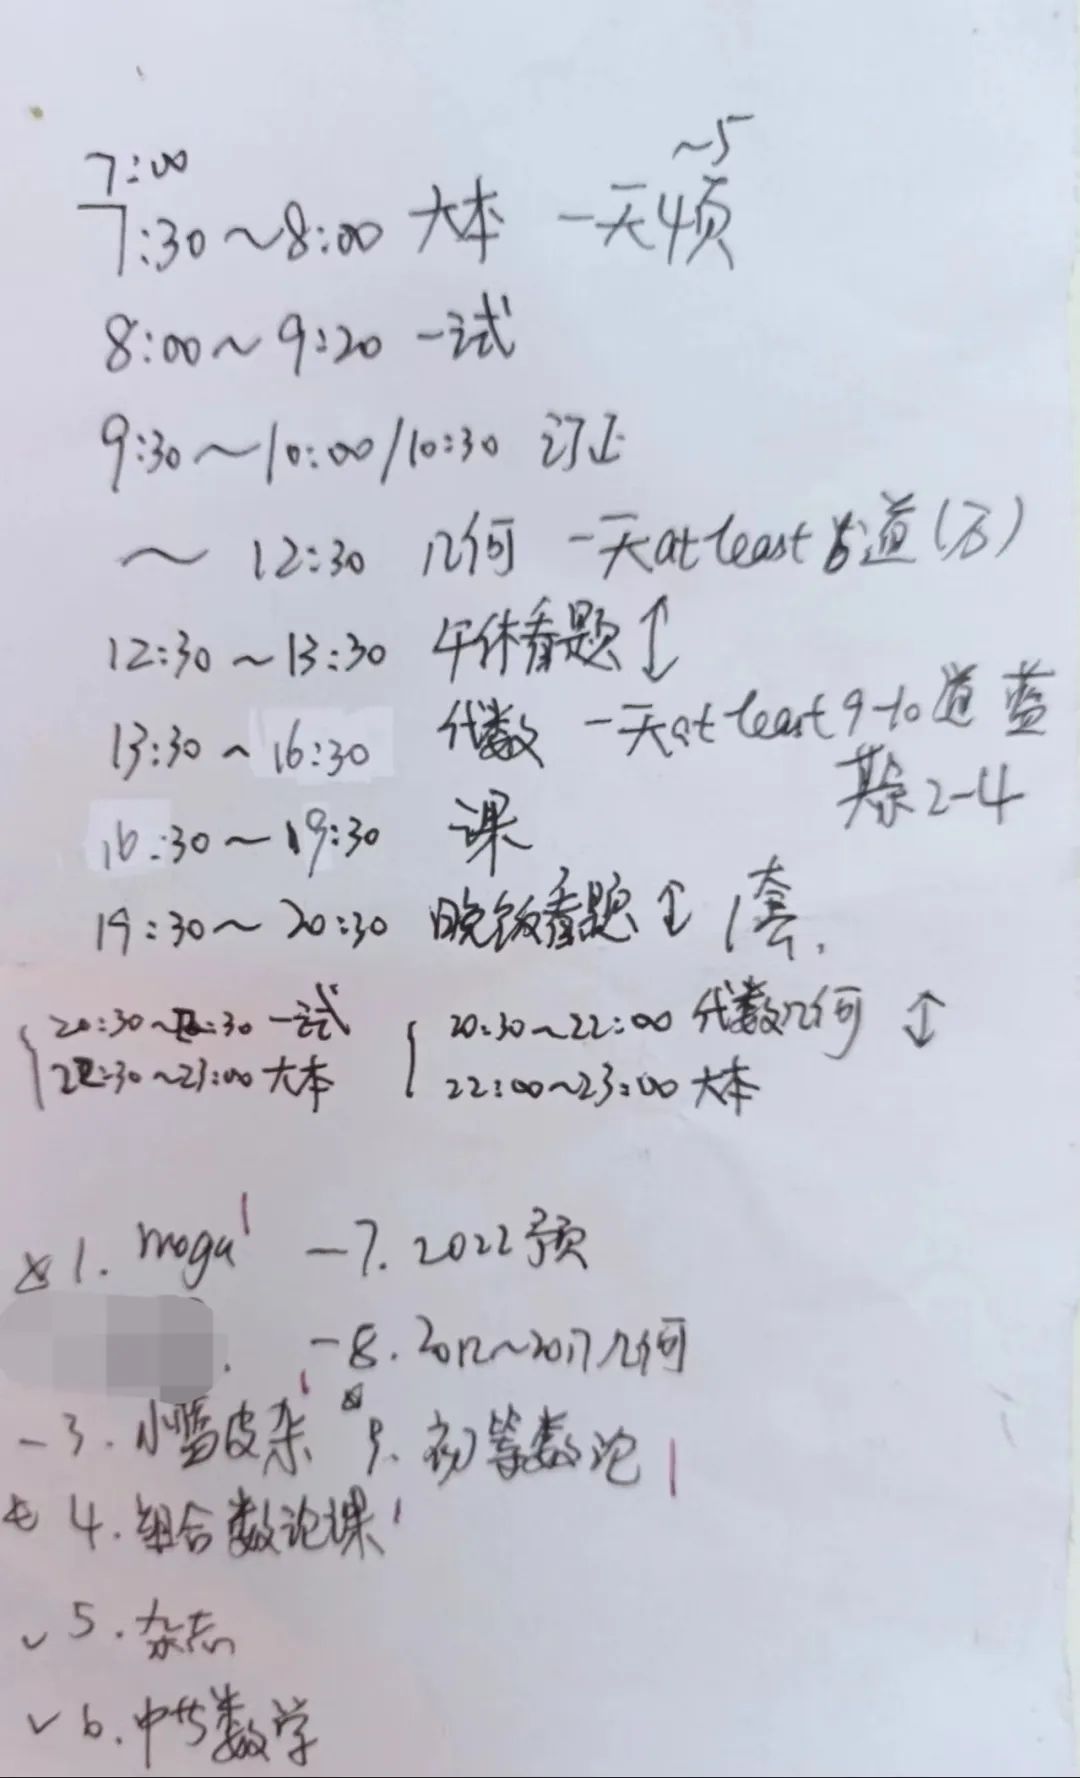 7:00
~5
7:30~8:00 大本 一天4页
8:00~9:20 一试
9:30~10:00/10:30 订正
~ 12:30 几何 一天at least 道(万)
12:30~13:30 午休看题↕
13:30~16:30 代数 一天at least 9-10道 蓝
其余2-4
16:30~19:30 课
19:30~20:30 晚饭看题↕ 1套.
20:30~22:30 一试
22:30~23:00 大本
20:30~22:00 代数几何 ↕
22:00~23:00 大本
1. moga
3. 小蓝皮杂
4. 组合数论课
✓ 5. 杂志
✓ 6. 中等数学
-7. 2022预
-8. 2012~2017几何
9. 初等数论